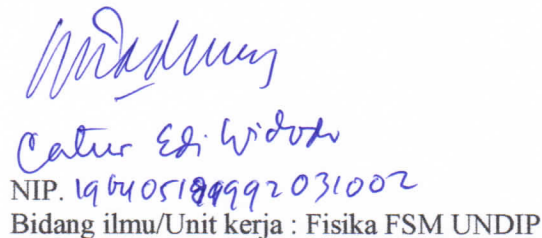 Catur Edi Widodo
NIP. 196405181992031002
Bidang ilmu/Unit kerja : Fisika FSM UNDIP